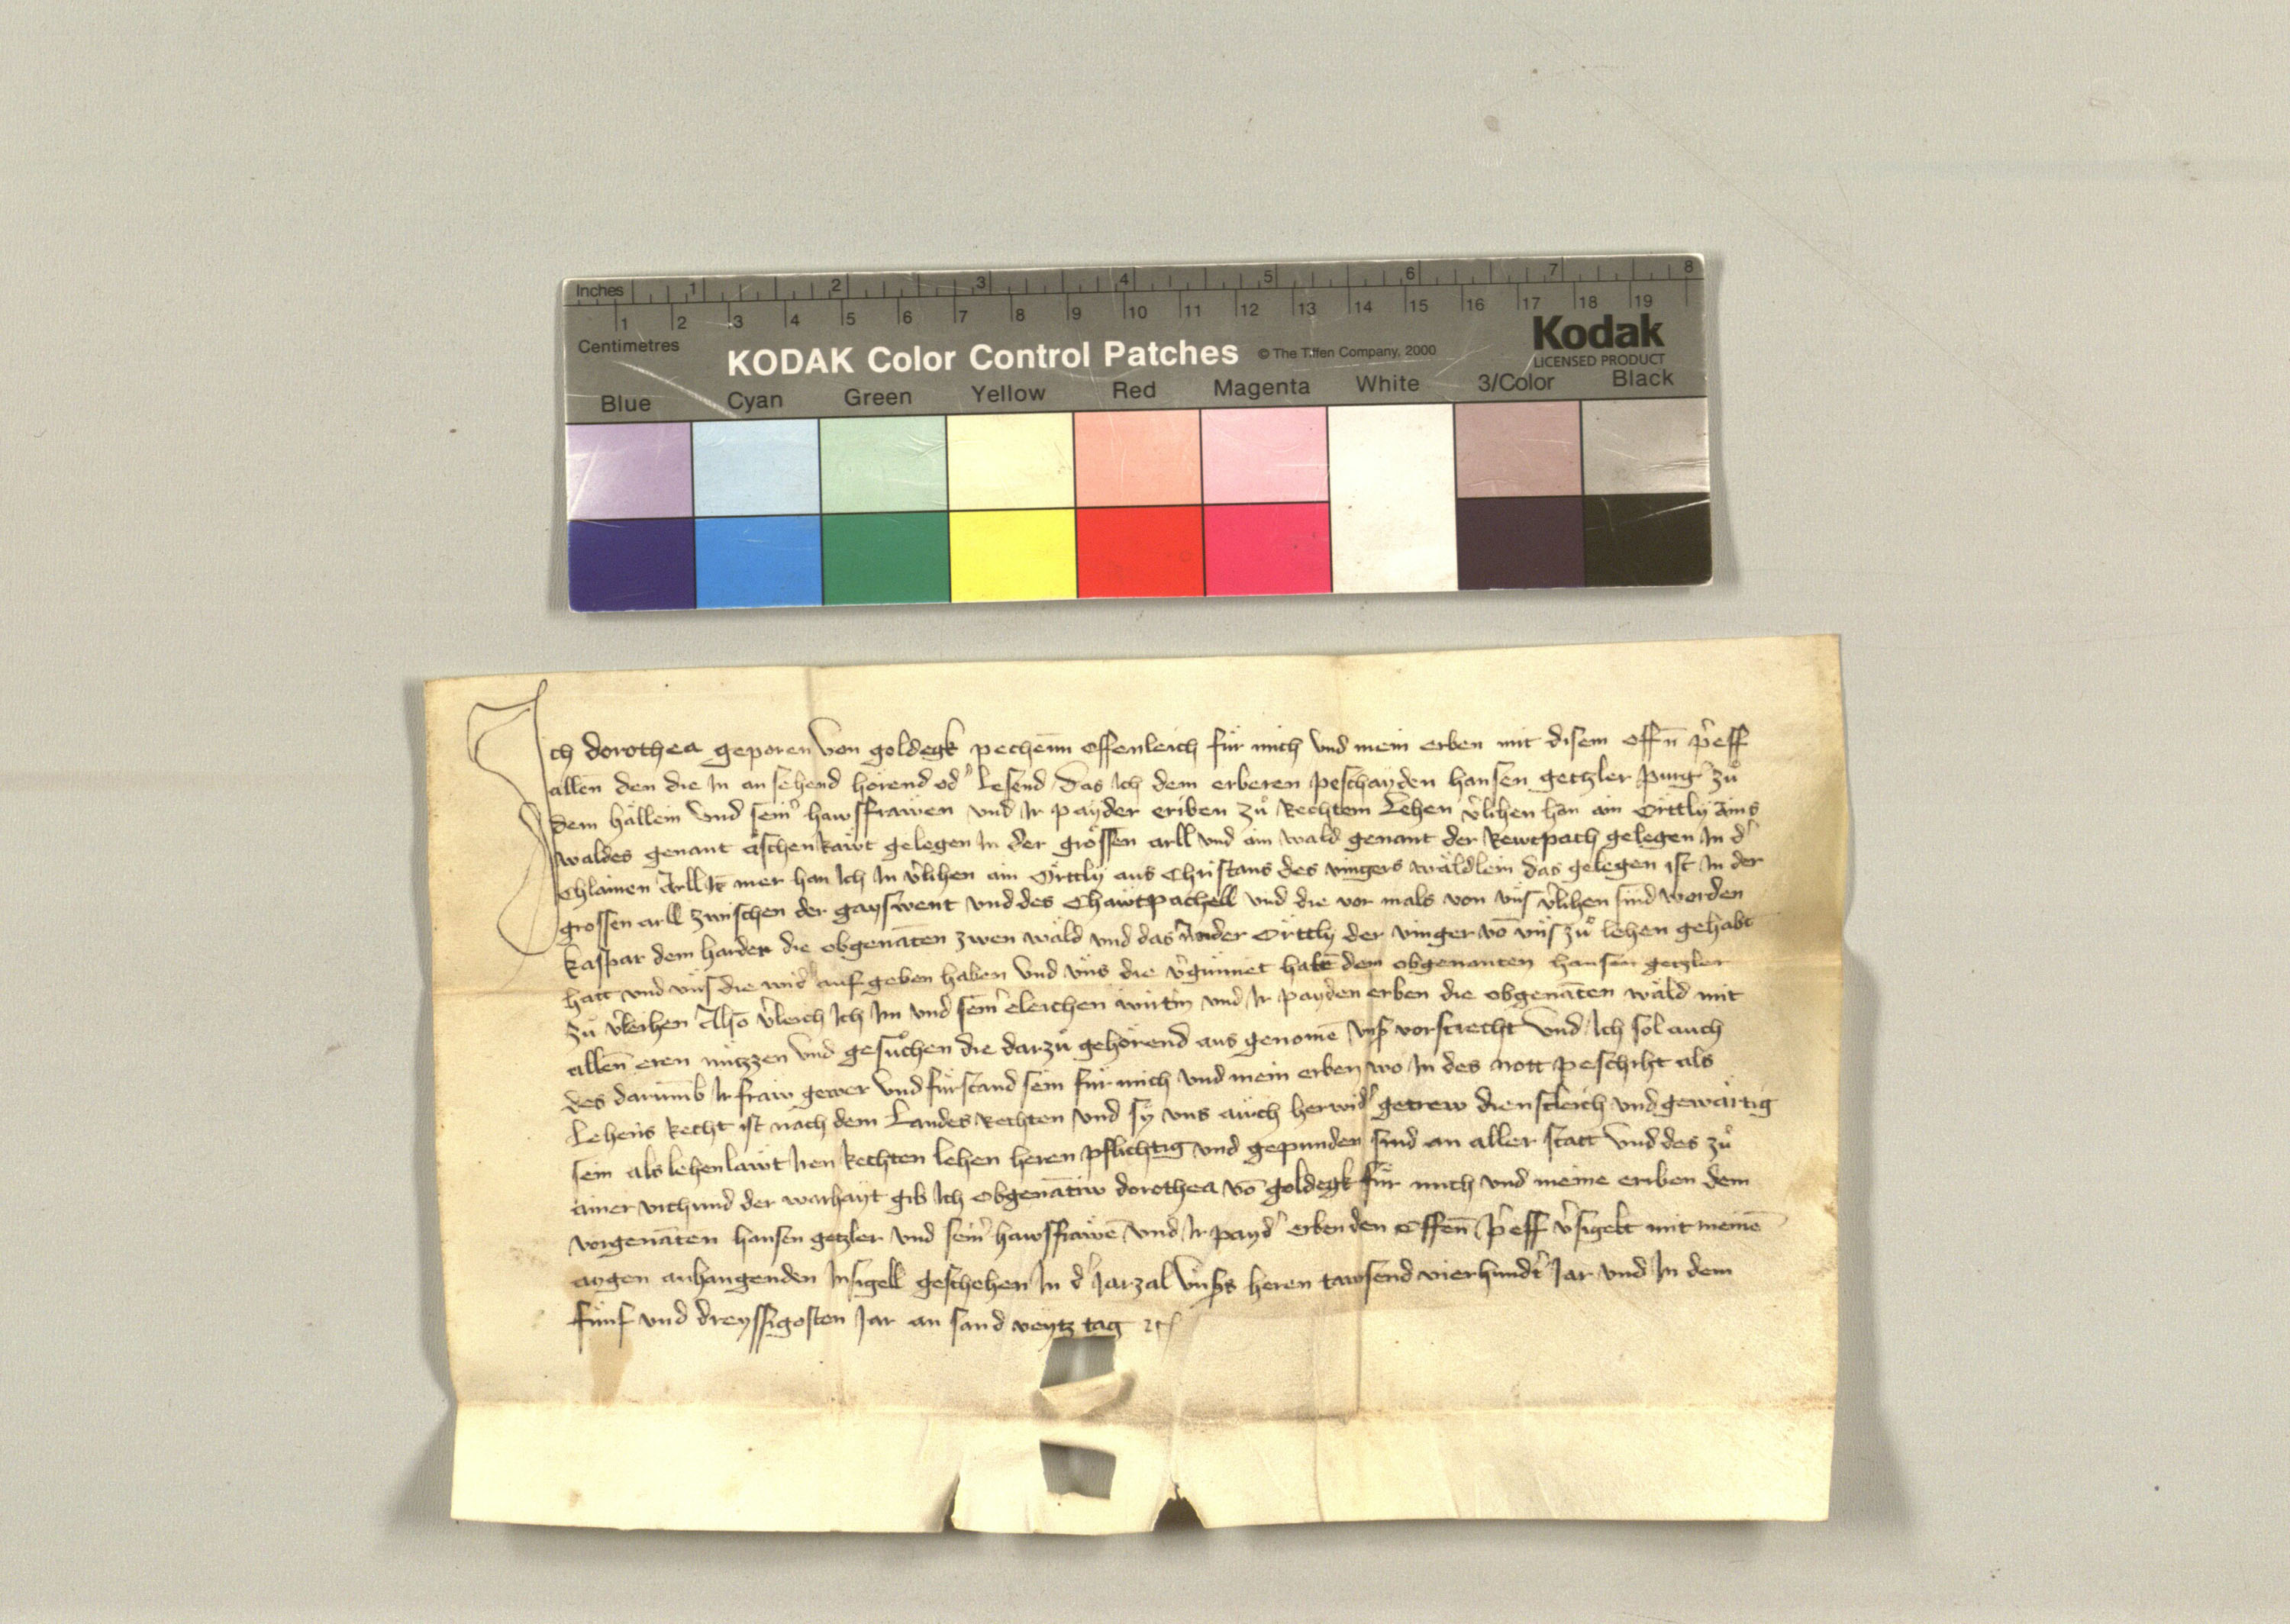 Inches 1 2 3 4 5 6 7 8
1 2 3 4 5 6 7 8 9 10 11 12 13 14 15 16 17 18 19
Centimetres
KODAK Color Control Patches © The Tiffen Company, 2000
Kodak
LICENSED PRODUCT
Blue Cyan Green Yellow Red Magenta White 3/Color Black
Ich dorothea geporen von goldegk pechenn offenleich für mich vnd mein erben mit disem offn̄ p̓eff
allen den die In an sehend hörend od̓ lesend das Ich dem erberen peschayden hansen getzler purg̓ zů
dem hällein vnd sein̓ hawsfrawen vnd Ir payder eriben zů Rechtem Lehen v̓lihen han ain Örttly ains
waldes genant äschenkawt gelegen In der grossen arll vnd ain wald genant der Rewtpach gelegen In d̓
Chlainen Arll It̄ mer han Ich In v̓lihen ain Örttly aus Christans des vingers wäldlein das gelegen ist In der
grossen arll zwischen der gayswent vnd des Chawtpachell vnd die vor mals von vns v̓lihen sind worden
kaspar dem harder die obgenāten zwen wäld vnd das ander Örttly der vinger vō vns zů lehen gehabt
hatt vnd vns die wid̓ auf geben haben vnd vns die v̓gunnet habē dem obgenanten hansen getzler
zů v̓leihen Also v̓leich Ich Im vnd sein̓ eleichen wirtin vnd Ir payden erben die obgenāten wäld mit
allen̄ eren nützzen vnd gesůchen die darzů gehörend aus genomē vorstrecht vnd Ich sol auch
des darumb Ir fraw gewer vnd fürstand sein für mich vnd mein erben wo In des nott peschiht als
Lehens Recht ist nach dem Landes Rechten vnd sy vns auch herwid̓ getrew dienstleich vnd gewärtig
sein als lehenlawt Iren Rechten lehen heren pflichtig vnd gepunden sind an aller statt vnd des zů
ainer vrchund der warhayt gib Ich obgenātiw dorothea vō goldegk für mich vnd meine eriben dem
vorgenāten hansen getzler vnd sein̓ hawsfrawē vnd Ir payd̓ erben den offen̄ p̓eff v̓sigelt mit meinē
aygen anhangenden Insigell geschehen In d̓ Jarzal vnsers heren tawsend vierhundt̓ Jar vnd In dem
fünf vnd dreyssigosten Jar an sand veytz tag